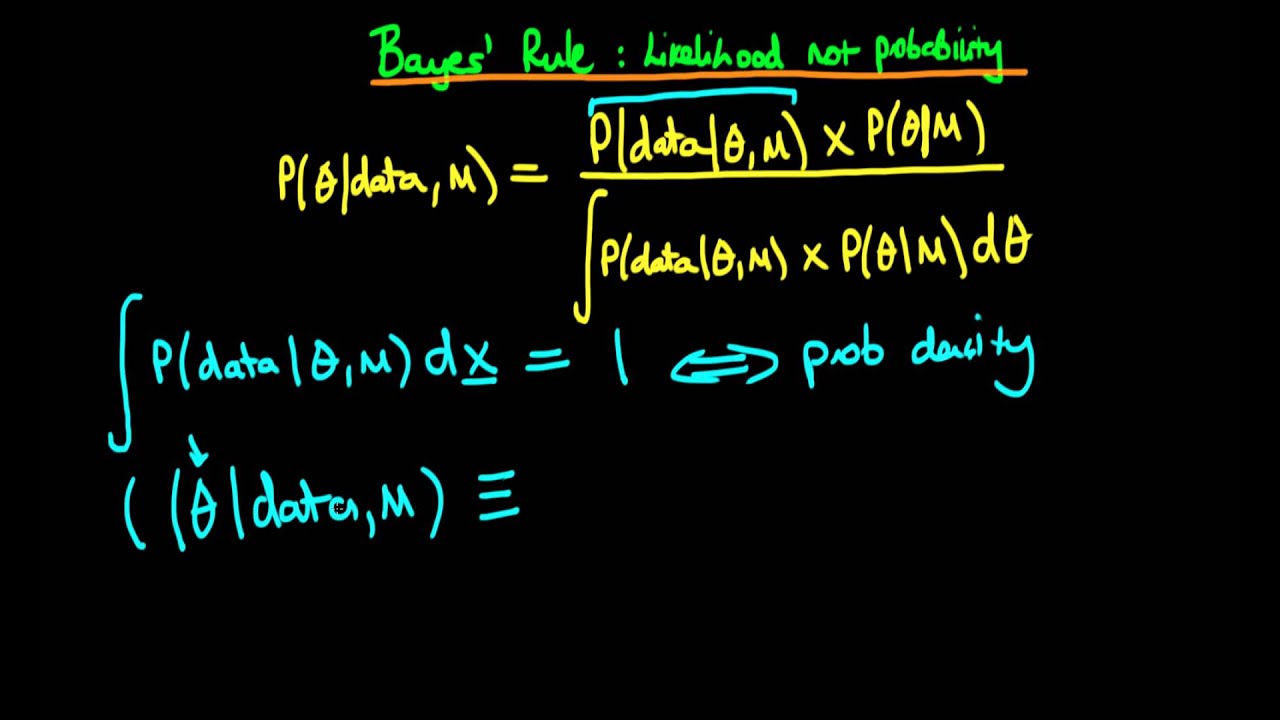 Bayes' Rule : Likelihood not probability
P(θ|data, M) = P(data|θ, M) × P(θ|M)
∫ P(data|θ, M) × P(θ|M) dθ
∫ P(data|θ, M) dx = 1 ⟺ prob density
( (θ|data, M) ≡